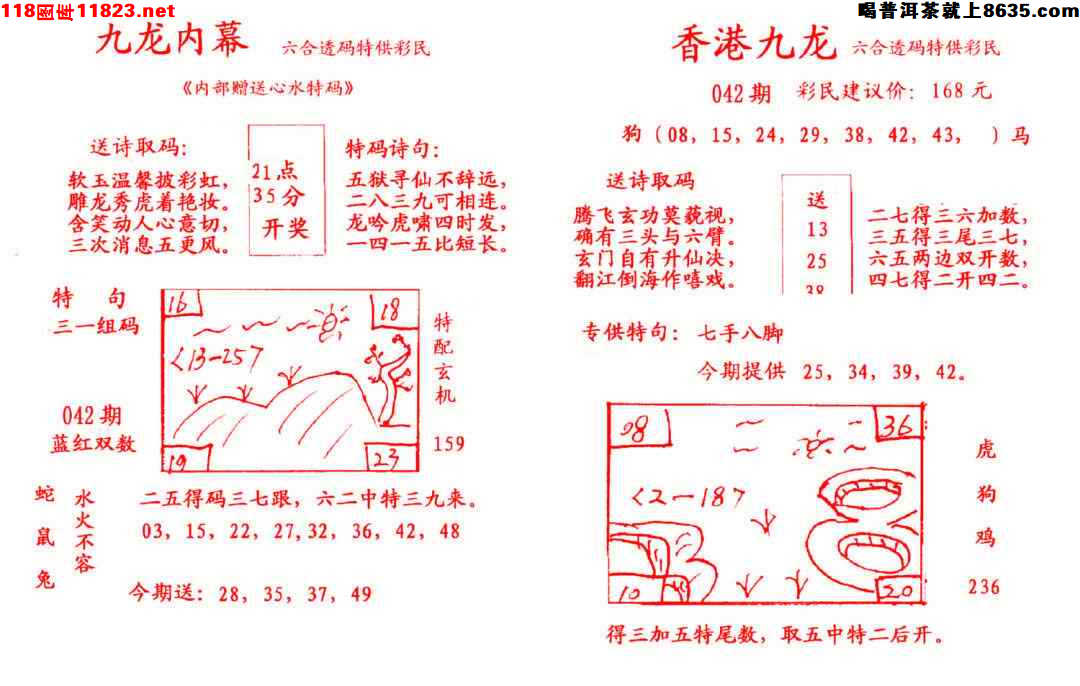 118图库11823.net
喝普洱茶就上8635.com
九龙内幕 六合透码特供彩民
《内部赠送心水特码》
送诗取码：
软玉温馨披彩虹，
雕龙秀虎着艳妆。
含笑动人心意切，
三次消息五更风。
21点
35分
开奖
特码诗句：
五狱寻仙不辞远，
二八三九可相连。
龙吟虎啸四时发，
一四一五比短长。
特 句
三一组码
042期
蓝红双数
16
18
<13-257
19
23
特配玄机
159
蛇
鼠
兔
水火不容
二五得码三七跟，六二中特三九来。
03，15，22，27，32，36，42，48
今期送：28，35，37，49
香港九龙 六合透码特供彩民
042期 彩民建议价：168元
狗（08，15，24，29，38，42，43， ）马
送诗取码
腾飞玄功莫藐视，
确有三头与六臂。
玄门自有升仙决，
翻江倒海作嘻戏。
送
13
25
38
二七得三六加数，
三五得三尾三七，
六五两边双开数，
四七得二开四二。
专供特句：七手八脚
今期提供 25，34，39，42。
08
36
<2-187
10
20
虎
狗
鸡
236
得三加五特尾数，取五中特二后开。